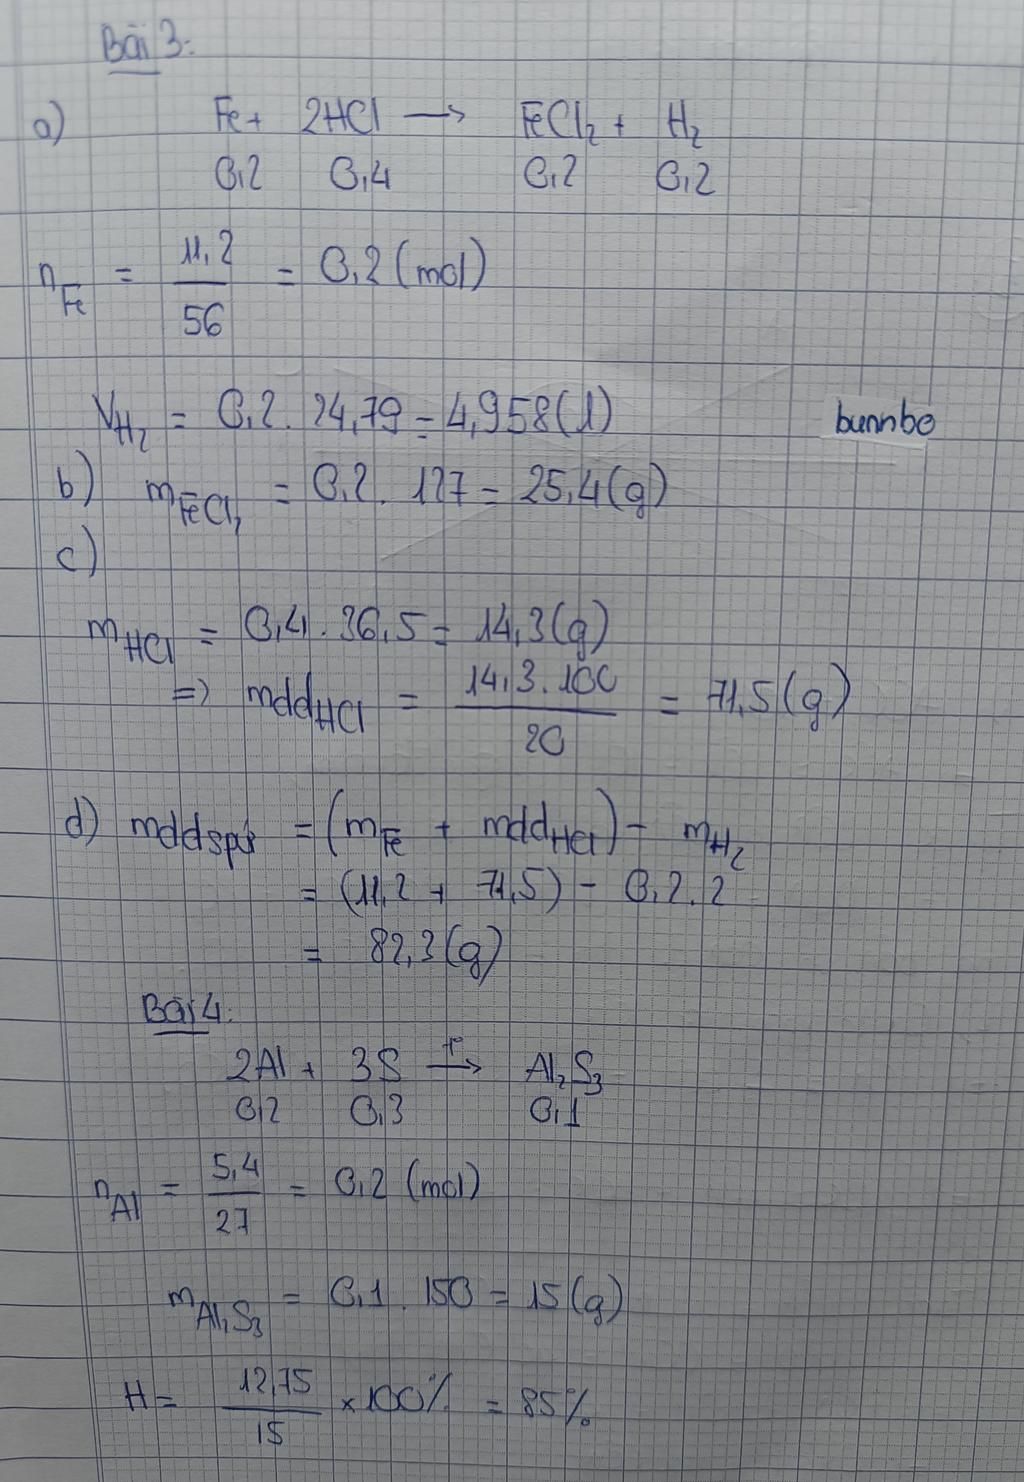 Bài 3:
a) Fe + 2HCl → FeCl₂ + H₂
0,2 0,4 0,2 0,2
n_Fe = 11,2/56 = 0,2 (mol)
V_H₂ = 0,2 . 24,79 = 4,958 (l)
bunnbo
b) m_FeCl₂ = 0,2 . 127 = 25,4 (g)
c)
m_HCl = 0,4 . 36,5 = 14,3 (g)
=> mdd_HCl = 14,3.100/20 = 71,5 (g)
d) mddspứ = (m_Fe + mdd_HCl) - m_H₂
= (11,2 + 71,5) - 0,2.2
= 82,3 (g)
Bài 4:
2Al + 3S →(t°) Al₂S₃
0,2 0,3 0,1
n_Al = 5,4/27 = 0,2 (mol)
m_Al₂S₃ = 0,1 . 150 = 15 (g)
H = 12,75/15 × 100% = 85%